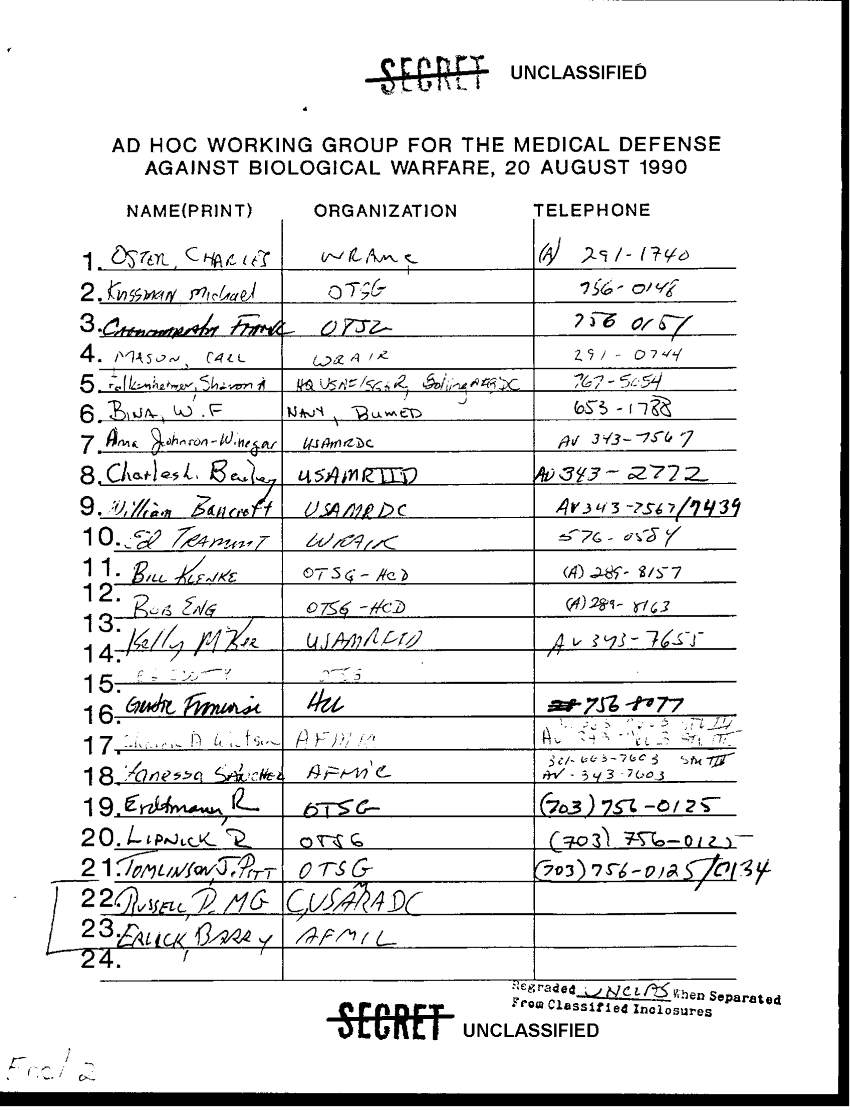 SECRET UNCLASSIFIED
AD HOC WORKING GROUP FOR THE MEDICAL DEFENSE
AGAINST BIOLOGICAL WARFARE, 20 AUGUST 1990
NAME(PRINT) ORGANIZATION TELEPHONE
1. OSTER, CHARLES WRAMC (A) 291-1740
2. Kussman Michael OTSG 756-0148
3. OTSG 756 0151
4. MASON, CARL WRAIR 291-0744
5. Falkenheimer, Sharon A HQ USAF/SGHR, Bolling AFB DC 767-5054
6. BINA, W.F NAVY, BUMED 653-1788
7. Anna Johnson-Winegar USAMRDC AV 343-7567
8. Charles L. Bailey USAMRIID AV 343-2772
9. William Bancroft USAMRDC AV 343-7567/7439
10. Ed TRAMONT WRAIR 576-0584
11. BILL KLENKE OTSG-HCD (A) 289-8157
12.
BOB ENG OTSG-HCD (A) 289-8163
13.
Kelly McKee USAMRIID AV 343-7655
14.
15. OTSG
16. 756 8077
AV 343
17. Sharon D Watson AFMIC
301-663-7603
18. Vanessa SANCHEZ AFMIC AV-343-7603
19. Erdtmann, R OTSG (703) 756-0125
20. LIPNICK R OTSG (703) 756-0125
21. TOMLINSON, J. PITT OTSG (703) 756-0125/0134
22. RUSSELL, P. MG C, USAMRDC
23. ERLICK, BARRY AFMIC
24.
Regraded UNCLAS When Separated
From Classified Inclosures
SECRET UNCLASSIFIED
Encl 2